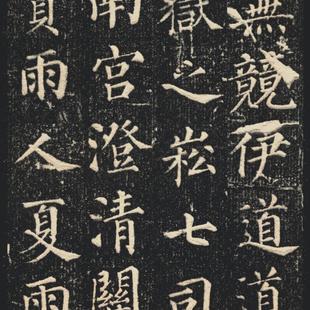 無競伊道道
嶽之崧七司
南宮澄清關
雨人夏雨